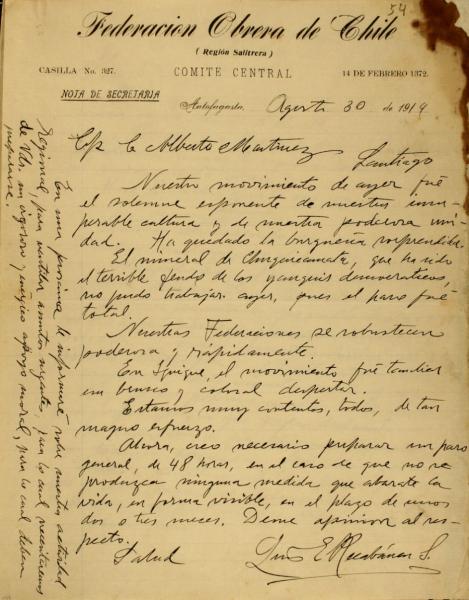 54
Federacion Obrera de Chile
( Región Salitrera )
CASILLA No. 327.
COMITE CENTRAL
14 DE FEBRERO 1372.
NOTA DE SECRETARIA
Antofagasta, Agosto 30 de 1919
C. Alberto Martinez
Santiago
Nuestro movimiento de ayer fué
el solemne esponente de nuestra insu-
perable cultura y de nuestra poderosa uni-
dad. Ha quedado la burguesia sorprendida.
El mineral de Chuquicamata, que ha sido
el terrible feudo de los yanquis democraticos,
no pudo trabajar ayer, pues el paro fué
total.
Nuestras Federaciones se robustecen
poderosa y rápidamente.
En Iquique, el movimiento fué tambien
un brusco y colosal despertar.
Estamos muy contentos, todos, de tan
magno esfuerzo.
Ahora, creo necesario preparar un paro
general, de 48 horas, en el caso de que no se
produzca ninguna medida que abarate la
vida, en forma visible, en el plazo de unos
dos o tres meses. Deme opinion al res-
pecto.
Salud
Luis E Recabarren S.
En una proxima le informaré sobre nuestra actividad
Regional, para ventilar asuntos urgentes, para lo cual necesitaremos
de Uds. un vigoroso y enérgico apoyo moral, para lo cual deben
prepararse.